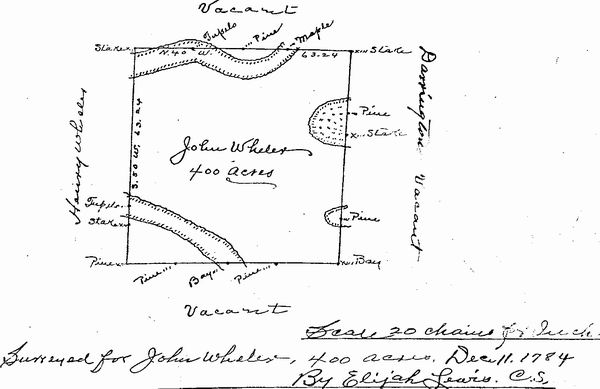 Vacant
Tupelo
Pine
Maple
Stake
N. 40 W.
63.24
Stake
Darrington
Vacant
Henry Wheler
S. 50 W. 63.24
Pine
Stake
John Wheler
400 acres
Tupelo
Stake
Pine
Pine
Bay
Pine
Bay
Pine
Vacant
Scale 20 chains for Inch.
Surveyed for John Wheler, 400 acres. Dec. 11. 1784
By Elijah Lewis. C.S.